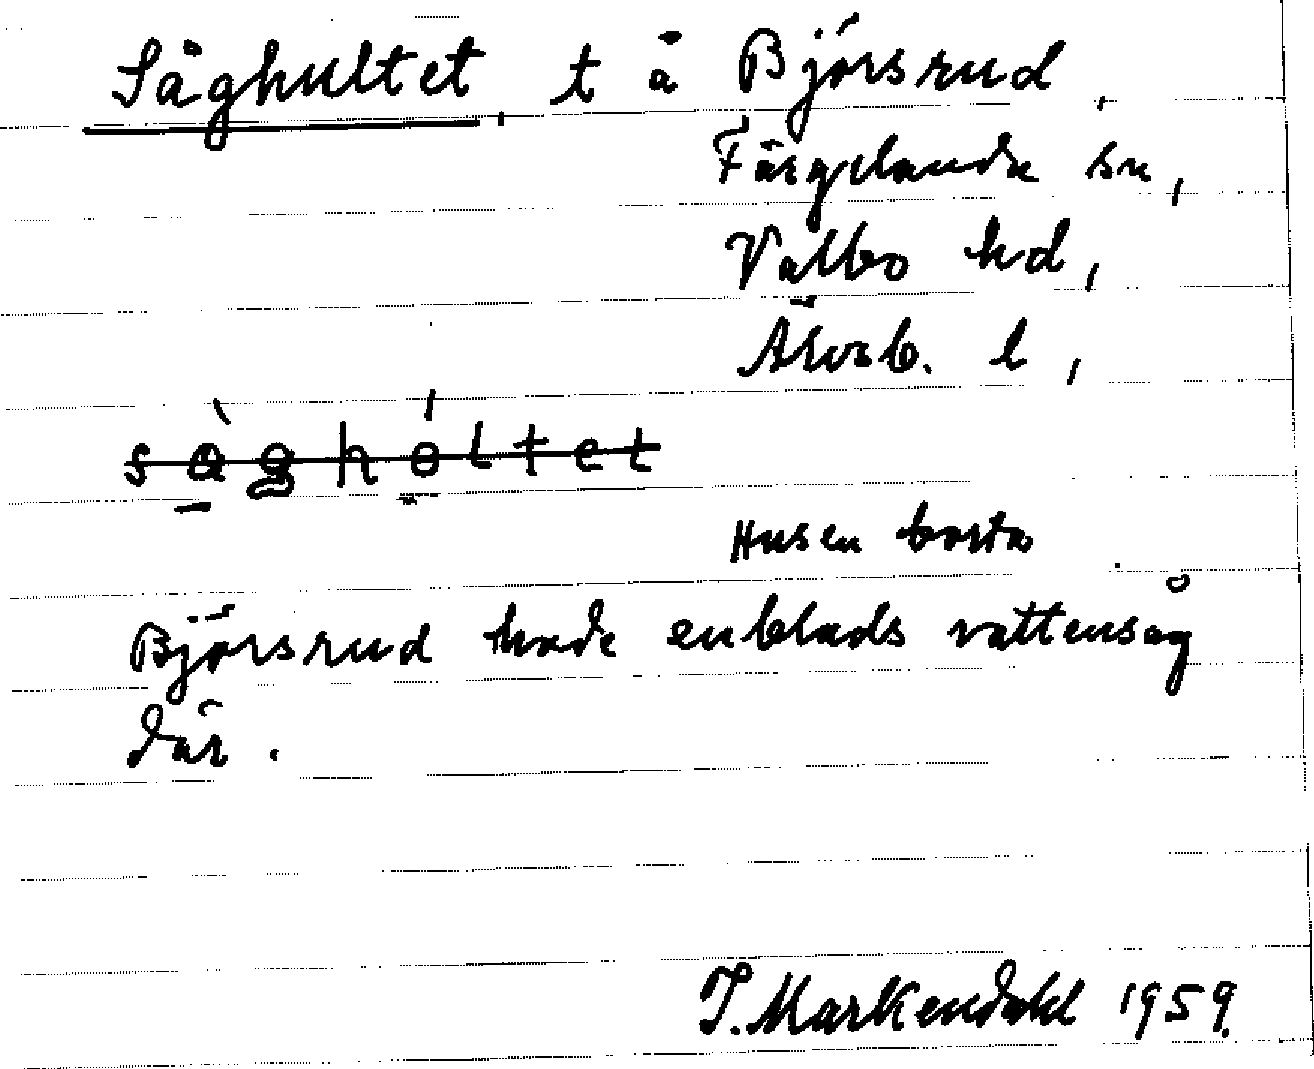 Såghultet, t å Björsrud,
Färgelanda sn,
Valbo hd,
Älvsb. l,
såghôltet
Husen borta
Björsrud hade enblads vattensåg
där.
T. Markendahl 1959.